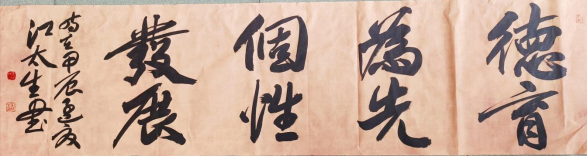 德育
為先
個性
發展
甲辰
江太生書